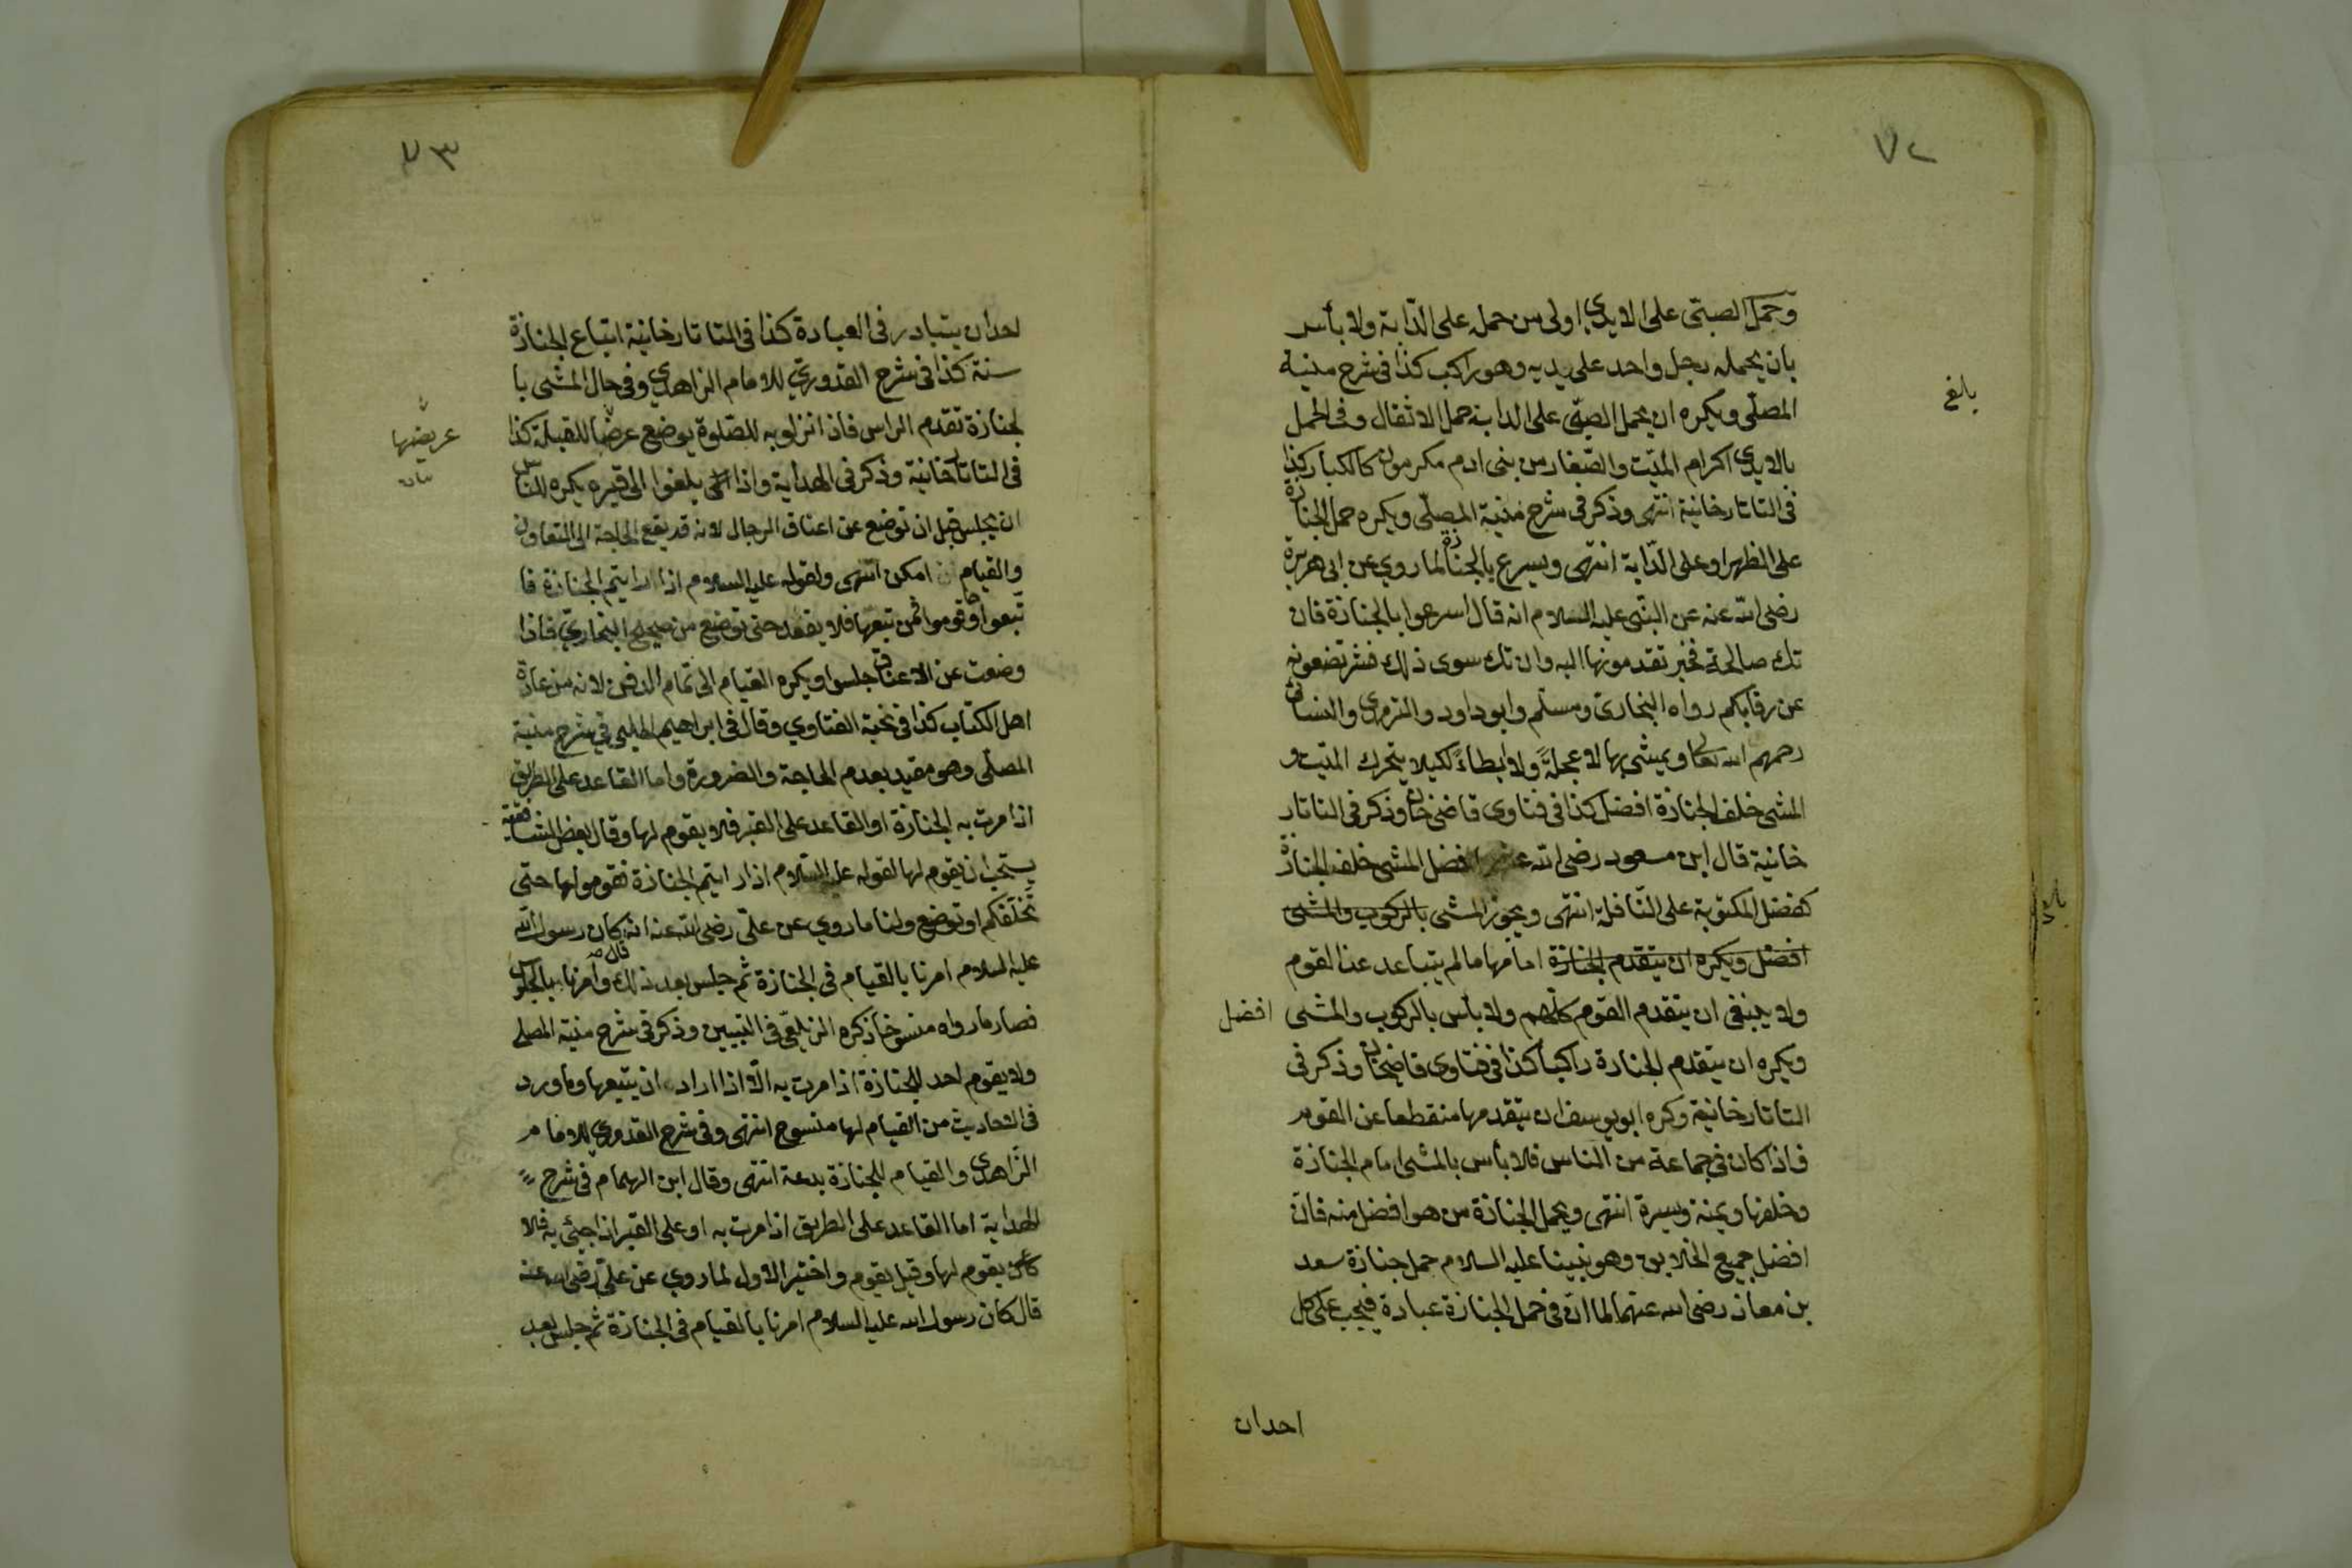 ٧٢
وحمل الصبى على الايدي اولى من حمله على الدابة ولا بأس
بان يحمله رجل واحد على يديه وهو راكب كذا فى شرح منية
بلغ
المصلى ويكره ان يحمل الصبى على الدابة حمل الاثقال وفى الحمل
بالايدي اكرام الميت والصغار من بنى ادم مكرمون كالكبار كذا
فى التاتارخانية انتهى وذكر فى شرح منية المصلى ويكره حمل الجنازة
على الظهر او على الدابة انتهى ويسرع بالجنازة لما روي عن ابى هريرة
رضى الله عنه عن النبى عليه السلام انه قال اسرعوا بالجنازة فان
تك صالحة فخير تقدمونها اليه وان تك سوى ذلك فشر تضعونه
عن رقابكم رواه البخارى ومسلم وابو داود والترمذي والنسائى
رحمهم الله تعالى ويمشى بها لا عجلة ولا ابطاء لكيلا يتحرك الميت و
المشى خلف الجنازة افضل كذا فى فتاوى قاضى خان وذكر فى التاتار
خانية قال ابن مسعود رضى الله عنه افضل المشى خلف الجنازة
كفضل المكتوبة على النافلة انتهى ويجوز المشى بالركوب والمشى
افضل ويكره ان يتقدم الجنازة امامها ما لم يتباعد عن القوم
ولا ينبغى ان يتقدم القوم كلهم ولا بأس بالركوب والمشى افضل
ويكره ان يتقدم الجنازة راكبا كذا فى فتاوى قاضيخان وذكر فى
التاتارخانية وكره ابو يوسف ان يتقدمها منقطعا عن القوم
فاذا كان فى جماعة من الناس فلا بأس بالمشى امام الجنازة
وخلفها ويمنة ويسرة انتهى ويحمل الجنازة من هو افضل منه فان
افضل جميع الخلايق وهو نبينا عليه السلام حمل جنازة سعد
بن معاذ رضى الله عنهما لما ان فى حمل الجنازة عبادة فيجب على كل
احدان
٧٣
احدان يتبادر فى العبادة كذا فى التاتارخانية اتباع الجنازة
سنة كذا فى شرح القدوري للامام الزاهدي وفى حال المشى با
لجنازة تقدم الراس فاذا نزلوا به للصلوة يوضع عرضا للقبلة كذا
عريضها
فى التاتارخانية وذكر فى الهداية واذا بلغوا الى قبره يكره للناس
ان يجلس قبل ان توضع عن اعناق الرجال لانه قد يقع الحاجة الى التعاون
والقيام امكن انتهى ولقوله عليه السلام اذا رايتم الجنازة فا
تبعوا وقوموا فمن تبعها فلا يقعد حتى توضع من صحيح البخاري فاذا
وضعت عن الاعناق جلسوا ويكره القيام الى تمام الدفن لانه من عادة
اهل الكتاب كذا فى نخبة الفتاوي وقال فى ابراهيم الحلبى فى شرح منية
المصلى وهو مقيد بعدم الحاجة والضرورة واما القاعد على الطريق
اذا مرت به الجنازة او القاعد على القبر فلا يقوم لها وقال بعض الشافعية
يستحب ان يقوم لها لقوله عليه السلام اذا رايتم الجنازة فقوموا لها حتى
تخلفكم او توضع ولنا ما روي عن على رضى الله عنه انه قال كان رسول الله
عليه السلام امرنا بالقيام فى الجنازة ثم جلس بعد ذلك وامرنا بالجلوس
فصار ما رواه منسوخا ذكره الزيلعى فى التبيين وذكر فى شرح منية المصلى
ولا يقوم احد للجنازة اذا مرت به الا اذا اراد ان يتبعها وما ورد
فى الاحاديث من القيام لها منسوخ انتهى وفى شرح القدوري للامام
الزاهدى والقيام للجنازة بدعة انتهى وقال ابن الهمام فى شرح
الهداية اما القاعد على الطريق اذا مرت به او على القبر اذا جيئ به فلا
يقوم لها وقيل يقوم واختير الاول لما روي عن على رضى الله عنه
قال كان رسول الله عليه السلام امرنا بالقيام فى الجنازة ثم جلس بعد